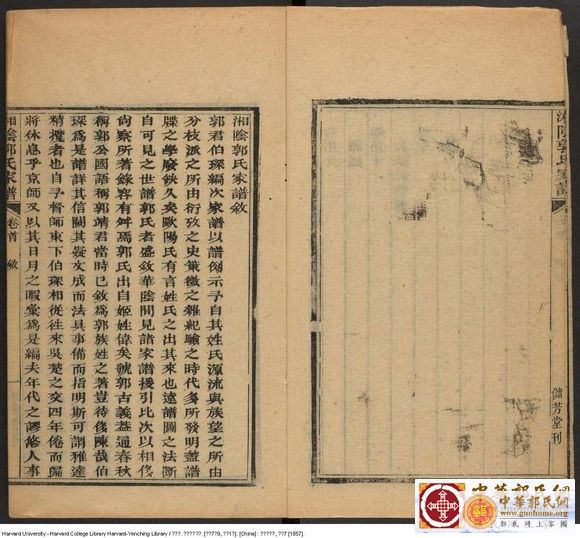 湘陰郭氏家譜
儲芳堂刊
湘陰郭氏家譜敘
郭君伯琛編次家譜以譜例示予自其姓氏源流與族望之所由
分枝派之所由衍攷之史策徵之雜紀驗之時代多所發明蓋譜
牒之學廢缺久矣歐陽氏有言姓氏之出其來也遠譜圖之法斷
自可見之世譜郭氏者盛敘華陰聞見諸家譜援引比次以相侈
尙察所著錄容有舛焉郭氏出自姬姓偉矣虢郭古義葢通春秋
稱郭公國語稱郭靖君當時已敘爲郭族姓之著豈待侈陳哉伯
琛爲是譜詳其信闕其疑文成而法具事備而指明斯可謂雅達
精攬者也自予督師東下伯琛相從往來吳楚之交四年倦而歸
將休息乎京師又以其日月之暇彙爲是編夫年代之謬悠人事
湘陰郭氏家譜 卷首 敘 一
中華郭氏網
中華郭氏網
www.guohome.org
郭氏網上家園
Harvard University - Harvard College Library Harvard-Yenching Library / ???. ??????. [????9, ??1?]. [China] : ?????, ??7 [1857].